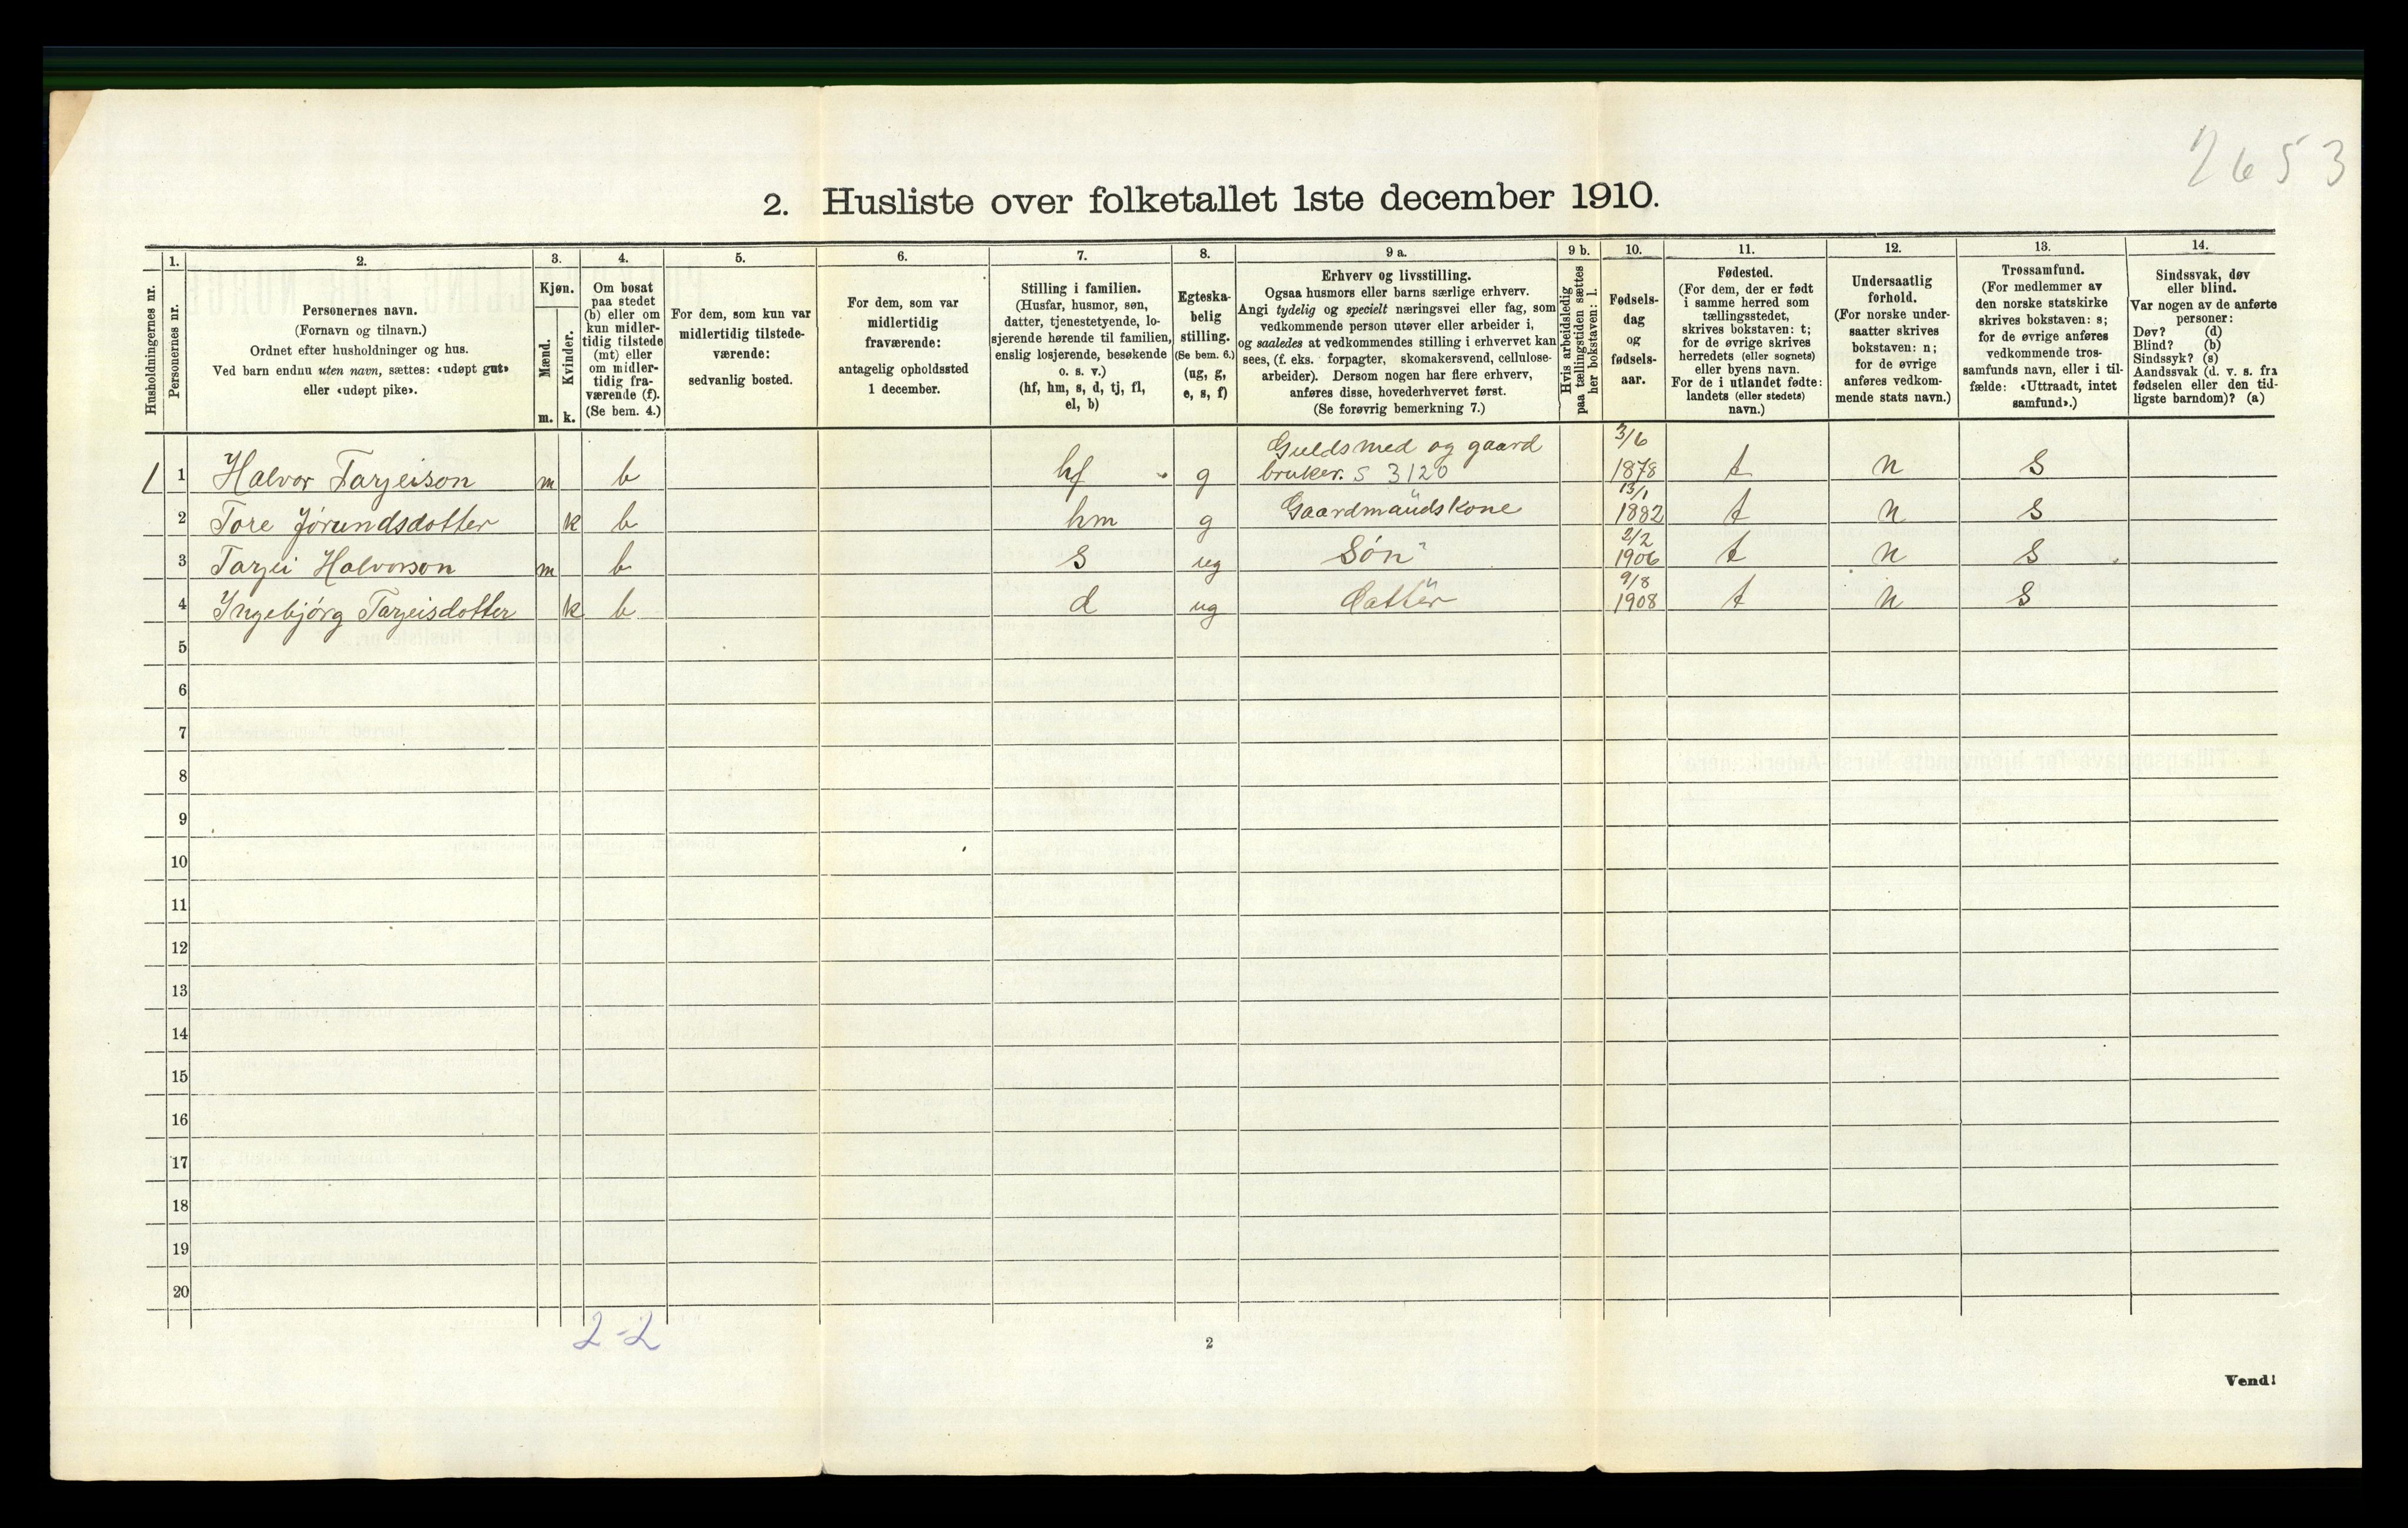 2653
2. Husliste over folketallet 1ste december 1910.
Husholdningernes nr.
1.
Personernes nr.
2.
Personernes navn.
(Fornavn og tilnavn.)
Ordnet efter husholdninger og hus.
Ved barn endnu uten navn, sættes: «udøpt gut»
eller «udøpt pike».
3.
Kjøn.
Mænd.
m.
Kvinder.
k.
4.
Om bosat
paa stedet
(b) eller om
kun midler-
tidig tilstede
(mt) eller
om midler-
tidig fra-
værende (f).
(Se bem. 4.)
5.
For dem, som kun var
midlertidig tilstede-
værende:
sedvanlig bosted.
6.
For dem, som var
midlertidig
fraværende:
antagelig opholdssted
1 december.
7.
Stilling i familien.
(Husfar, husmor, søn,
datter, tjenestetyende, lo-
sjerende hørende til familien,
enslig losjerende, besøkende
o. s. v.)
(hf, hm, s, d, tj, fl,
el, b)
8.
Egteska-
belig
stilling.
(Se bem. 6.)
(ug, g,
e, s, f)
9 a.
Erhverv og livsstilling.
Ogsaa husmors eller barns særlige erhverv.
Angi tydelig og specielt næringsvei eller fag, som
vedkommende person utøver eller arbeider i,
og saaledes at vedkommendes stilling i erhvervet kan
sees, (f. eks. forpagter, skomakersvend, cellulose-
arbeider). Dersom nogen har flere erhverv,
anføres disse, hovederhvervet først.
(Se forøvrig bemerkning 7.)
9 b.
Hvis arbeidsledig
paa tællingstiden sættes
her bokstaven: l.
10.
Fødsels-
dag
og
fødsels-
aar.
11.
Fødested.
(For dem, der er født
i samme herred som
tællingsstedet,
skrives bokstaven: t;
for de øvrige skrives
herredets (eller sognets)
eller byens navn.
For de i utlandet fødte:
landets (eller stedets)
navn.)
12.
Undersaatlig
forhold.
(For norske under-
saatter skrives
bokstaven: n;
for de øvrige
anføres vedkom-
mende stats navn.)
13.
Trossamfund.
(For medlemmer av
den norske statskirke
skrives bokstaven: s;
for de øvrige anføres
vedkommende tros-
samfunds navn, eller i til-
fælde: «Uttraadt, intet
samfund».)
14.
Sindssvak, døv
eller blind.
Var nogen av de anførte
personer:
Døv? (d)
Blind? (b)
Sindssyk? (s)
Aandssvak (d. v. s. fra
fødselen eller den tid-
ligste barndom)? (a)
Guldsmed og gaard 3/6
1 1 Halvor Tarjeison m b hf g bruker. S 3120 1878 t n S
13/1
2 Tore Jørundsdotter k b hm g Gaardmandskone 1882 t n S
2/2
3 Tarjei Halvorson m b s ug Søn 1906 t n S
9/8
4 Ingebjørg Tarjeisdotter k b d ug datter 1908 t n S
5
6
7
8
9
10
11
12
13
14
15
16
17
18
19
20
2-2
2
Vend!